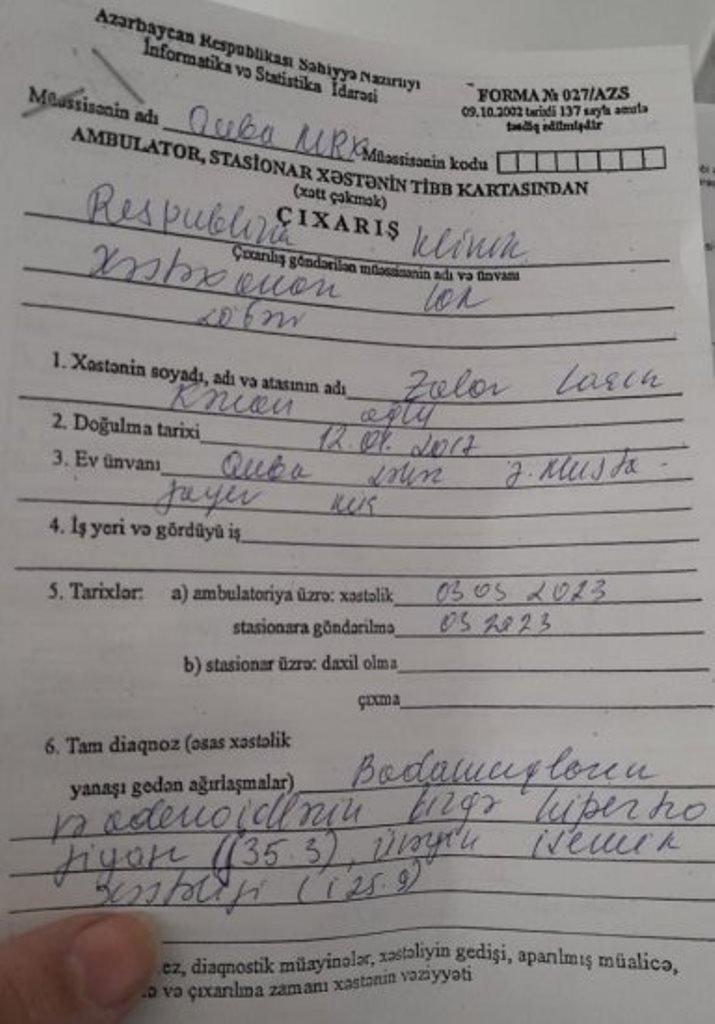 Azərbaycan Respublikası Səhiyyə Nazirliyi
İnformatika və Statistika İdarəsi
FORMA № 027/AZS
09.10.2002 tarixli 137 saylı əmrlə
təsdiq edilmişdir
Müəssisənin adı Quba MRX Müəssisənin kodu
AMBULATOR, STASİONAR XƏSTƏNİN TİBB KARTASINDAN
(xətt çəkmək)
ÇIXARIŞ
Respublika Klinik
Çıxarılış göndərilən müəssisənin adı və ünvanı
Xəstəxanan LOR
1. Xəstənin soyadı, adı və atasının adı
oğlu
2. Doğulma tarixi
3. Ev ünvanı Quba
4. İş yeri və gördüyü iş
5. Tarixlər: a) ambulatoriya üzrə: xəstəlik 03 05 2023
stasionara göndərilmə 05 2023
b) stasionar üzrə: daxil olma
çıxma
6. Tam diaqnoz (əsas xəstəlik
yanaşı gedən ağırlaşmalar) Badamcıqların
və adenoidlərin birgə hipertro
fiyası (J35.3), ürəyin işemik
xəstəliyi (i25.9)
ez, diaqnostik müayinələr, xəstəliyin gedişi, aparılmış müalicə,
və çıxarılma zamanı xəstənin vəziyyəti